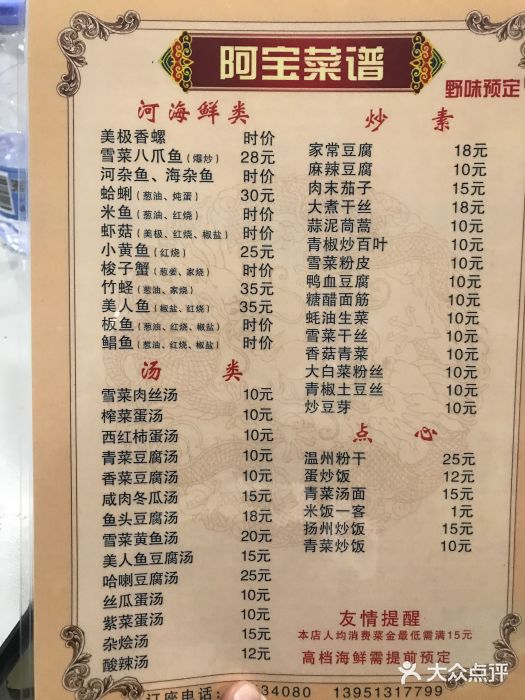 阿宝菜谱
野味预定
河海鲜类
美极香螺 时价
雪菜八爪鱼（爆炒） 28元
河杂鱼、海杂鱼 时价
蛤蜊（葱油、炖蛋） 30元
米鱼（葱油、红烧） 时价
虾菇（美极、红烧、椒盐） 时价
小黄鱼（红烧） 25元
梭子蟹（葱姜、家烧） 时价
竹蛏（葱油、家烧） 35元
美人鱼（椒盐、红烧） 35元
板鱼（葱油、红烧、椒盐） 时价
鲳鱼（葱油、红烧、椒盐） 时价
汤类
雪菜肉丝汤 10元
榨菜蛋汤 10元
西红柿蛋汤 10元
青菜豆腐汤 10元
香菜豆腐汤 10元
咸肉冬瓜汤 15元
鱼头豆腐汤 18元
雪菜黄鱼汤 20元
美人鱼豆腐汤 15元
哈喇豆腐汤 25元
丝瓜蛋汤 10元
紫菜蛋汤 10元
杂烩汤 15元
酸辣汤 12元
炒素
家常豆腐 18元
麻辣豆腐 10元
肉末茄子 15元
大煮干丝 18元
蒜泥茼蒿 10元
青椒炒百叶 10元
雪菜粉皮 10元
鸭血豆腐 10元
糖醋面筋 10元
蚝油生菜 10元
雪菜干丝 10元
香菇青菜 10元
大白菜粉丝 10元
青椒土豆丝 10元
炒豆芽 10元
点心
温州粉干 25元
蛋炒饭 12元
青菜汤面 15元
米饭一客 1元
扬州炒饭 15元
青菜炒饭 10元
友情提醒
本店人均消费菜金最低需满15元
高档海鲜需提前预定
订座电话： 34080 13951317799
大众点评